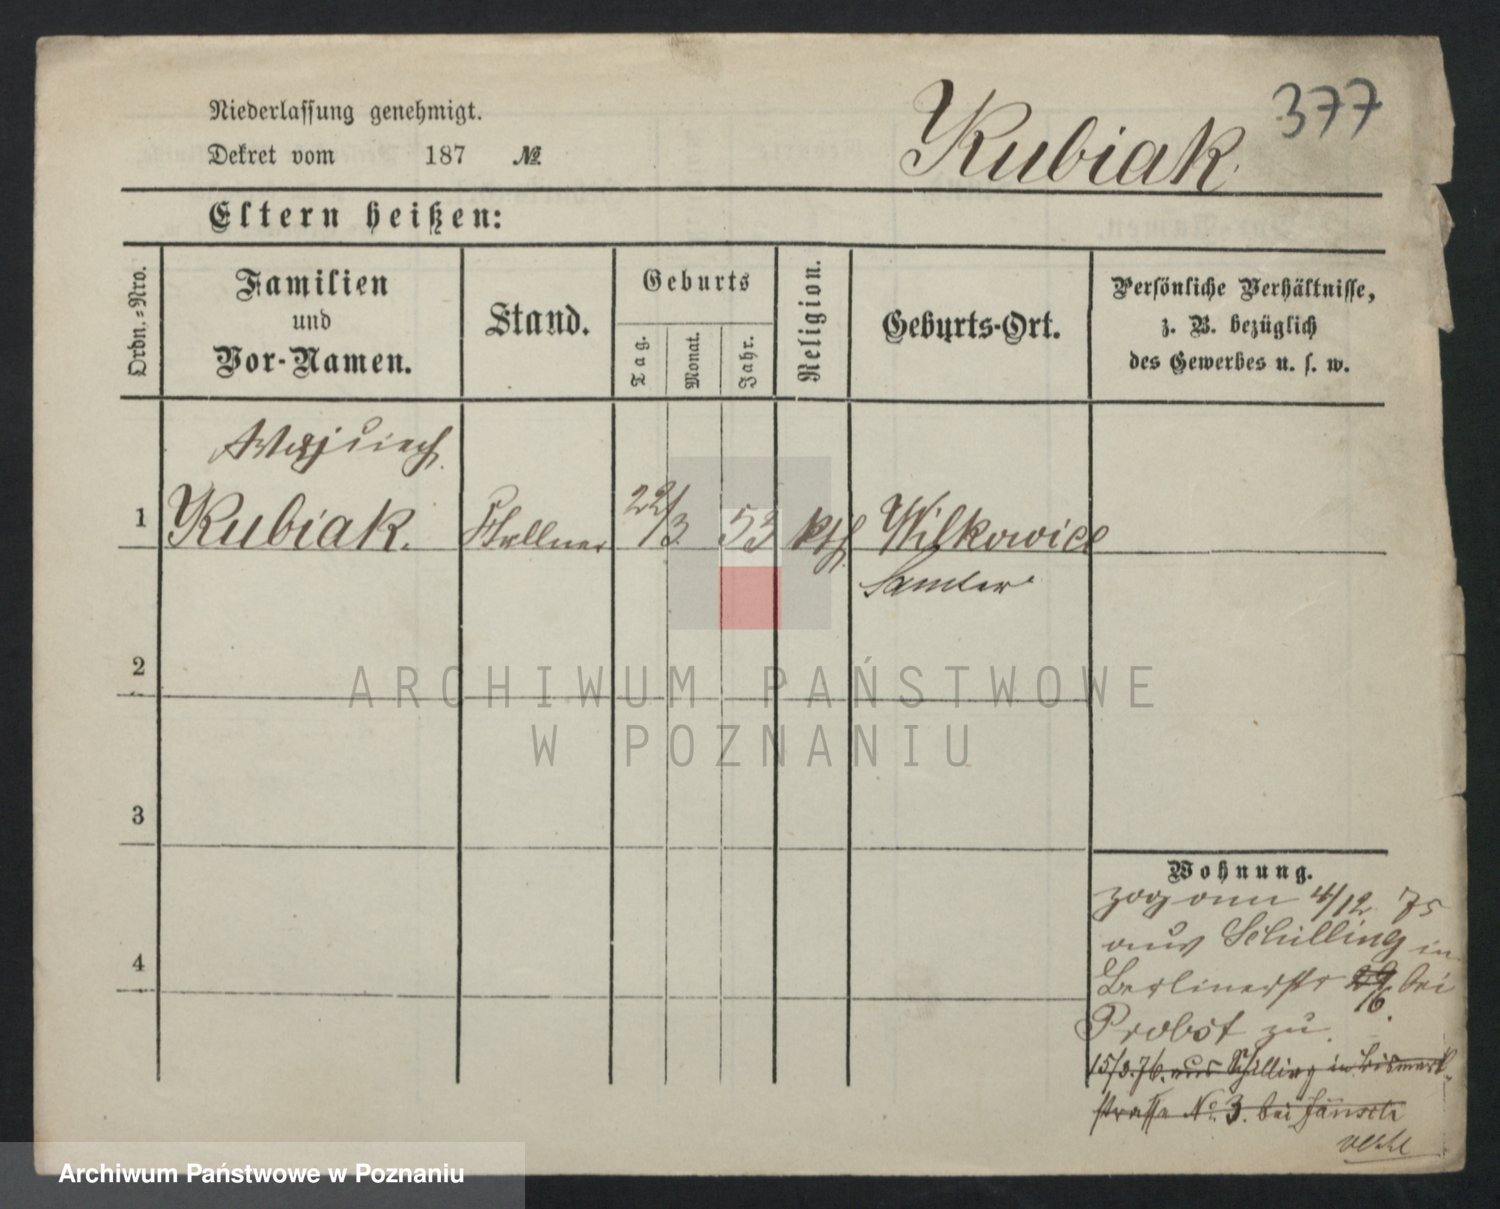 377
Niederlassung genehmigt.
Kubiak.
Dekret vom 187 №
Eltern heißen:
Ordn.=Nro.
Familien
und
Vor-Namen.
Stand.
Geburts
Tag.
Monat.
Jahr.
Religion.
Geburts-Ort.
Persönliche Verhältnisse,
z. B. bezüglich
des Gewerbes u. s. w.
Wojciech
1 Kubiak. Kellner 22/3 53 kth. Wilkowice
Samter
2
ARCHIWUM PAŃSTWOWE
W POZNANIU
3
4
Wohnung.
zog am 4/12 75
aus Schilling in
Berlinerstr 29 bei
16.
Probst zu.
15/3.76. aus Schilling in Bismark-
strasse No. 3. bei Jänsch
Archiwum Państwowe w Poznaniu